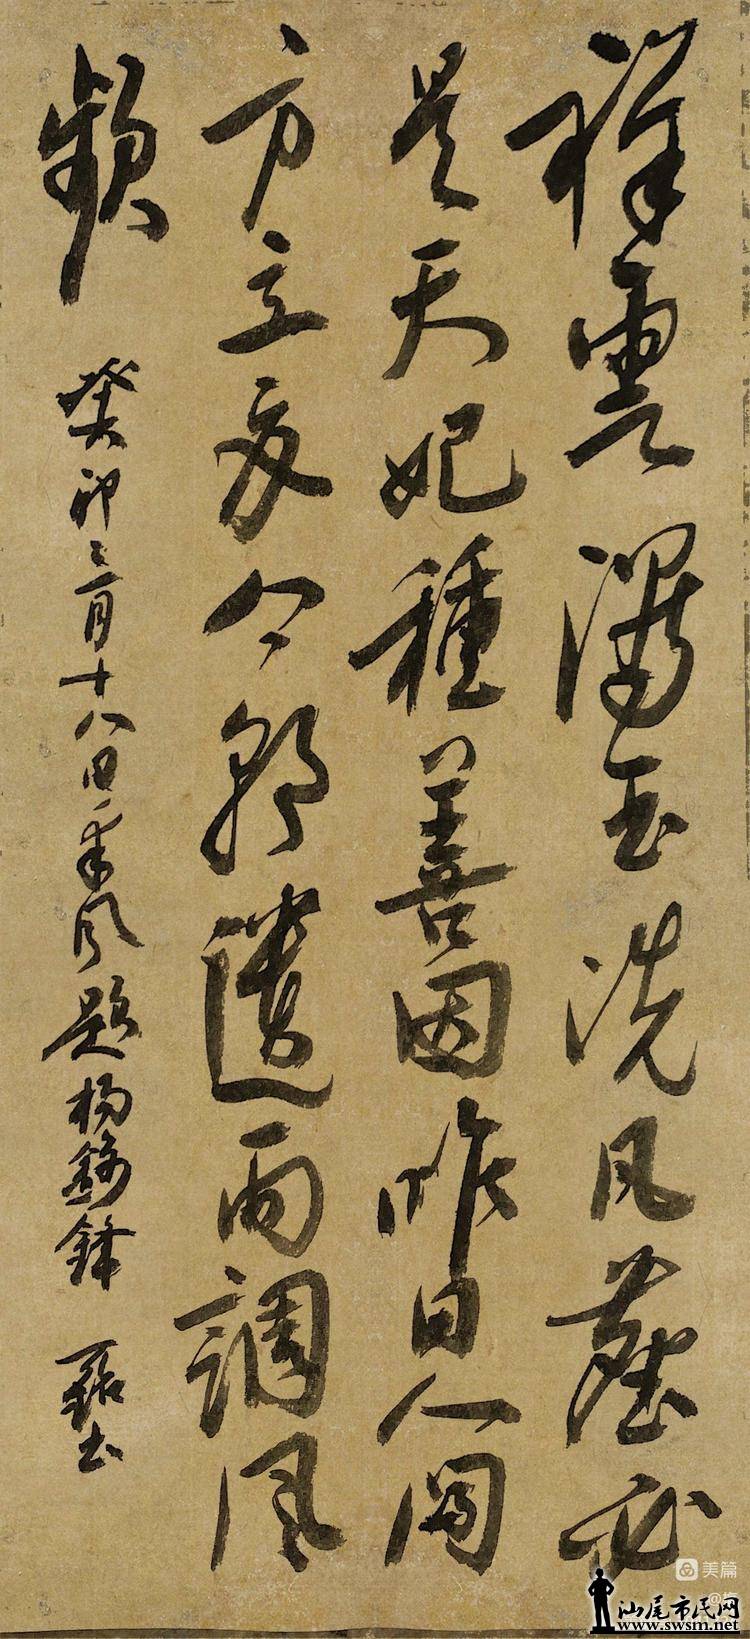 祥雲玉洗凡塵必
是天妃種善因昨日人間
方立夏今朝遣雨調風
頻
癸卯三月十八日風題楊鋒書
美篇
汕尾市民网
www.swsm.net